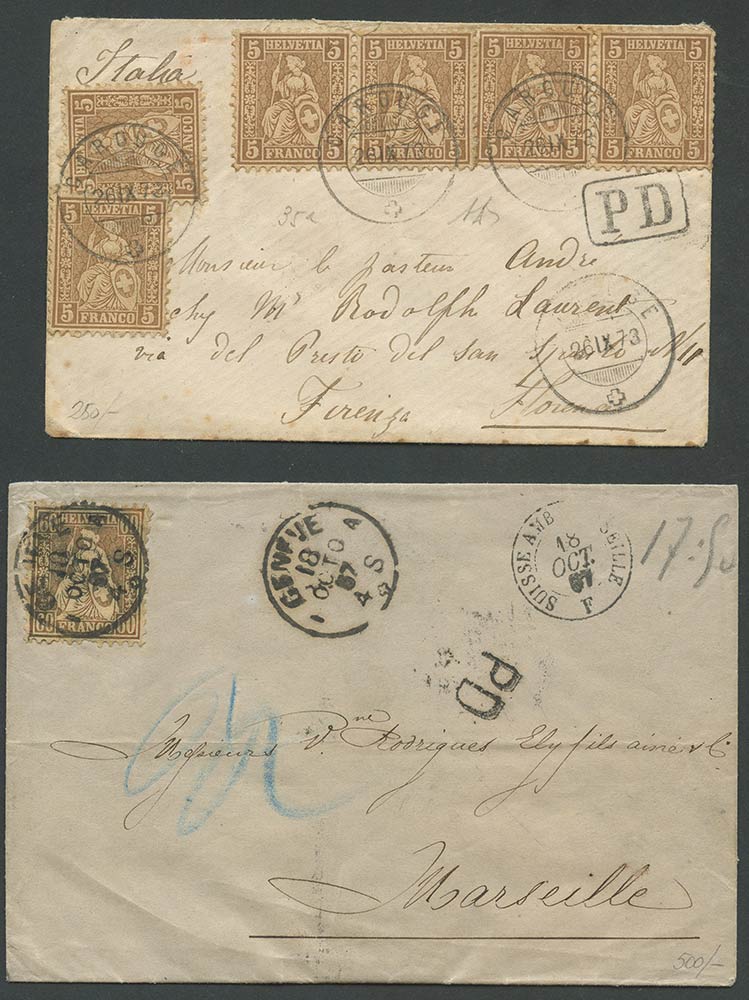 Italia
5 HELVETIA 5 5 HELVETIA 5 5 HELVETIA 5 5 HELVETIA 5
5 FRANCO 5 5 FRANCO 5 5 FRANCO 5 5 FRANCO 5
5 HELVETIA 5
5 FRANCO 5
5 HELVETIA 5
5 FRANCO 5
CAROUGE
26 IX 73
CAROUGE
26 IX 73
CAROUGE
26 IX 73
PD
35a
Monsieur le pasteur André
chez Mr Rodolph Laurent
via del Presto del san
Firenza Florence
26 IX 73
250/-
60 HELVETIA 60
60 FRANCO 60
18
OCTO
67
4 S
GENEVE
18
OCTO
67
4 S
SUISSE AMB MARSEILLE
18
OCT.
67
F
17:50
PD
Messieurs Vne Rodrigues Ely fils ainé & Ci
Marseille
500/-